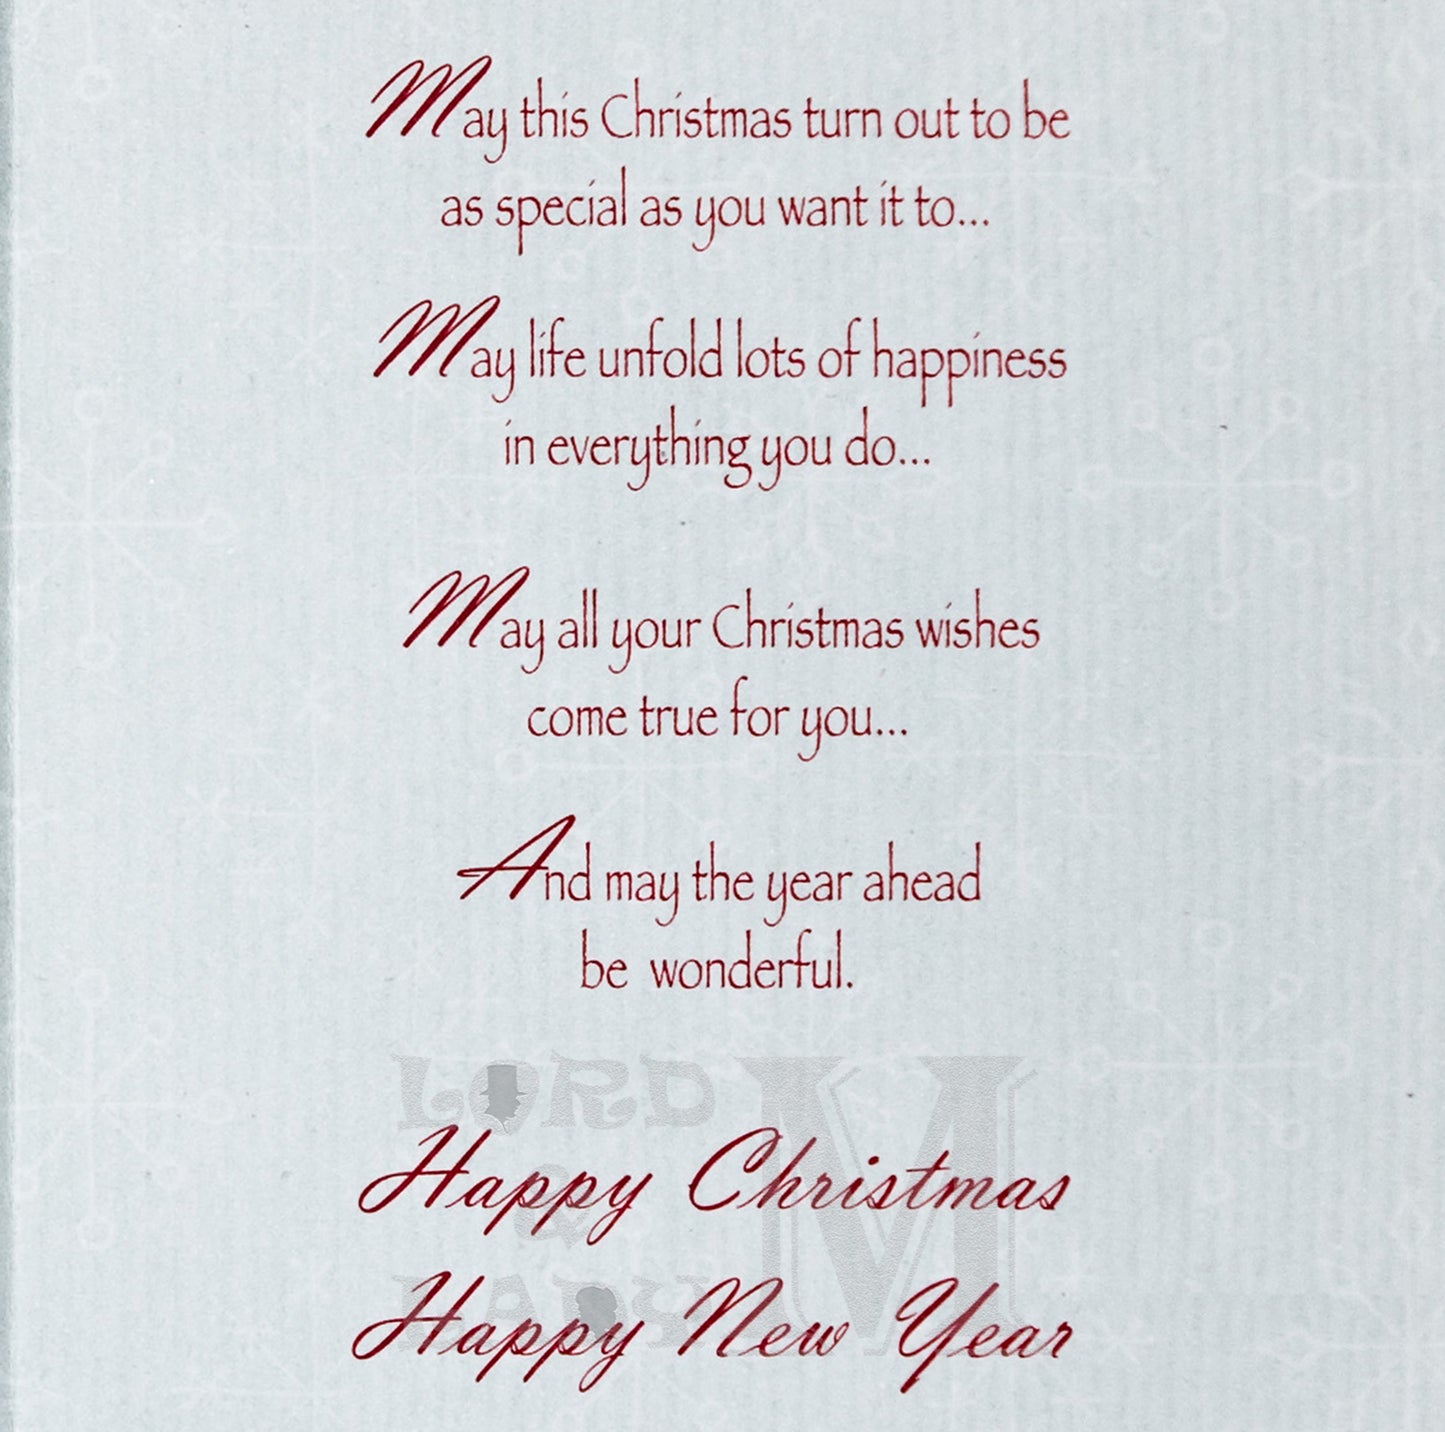 May this Christmas turn out to be
as special as you want it to...
May life unfold lots of happiness
in everything you do...
May all your Christmas wishes
come true for you...
And may the year ahead
be wonderful.
LORD
&
LADY
M
Happy Christmas
Happy New Year